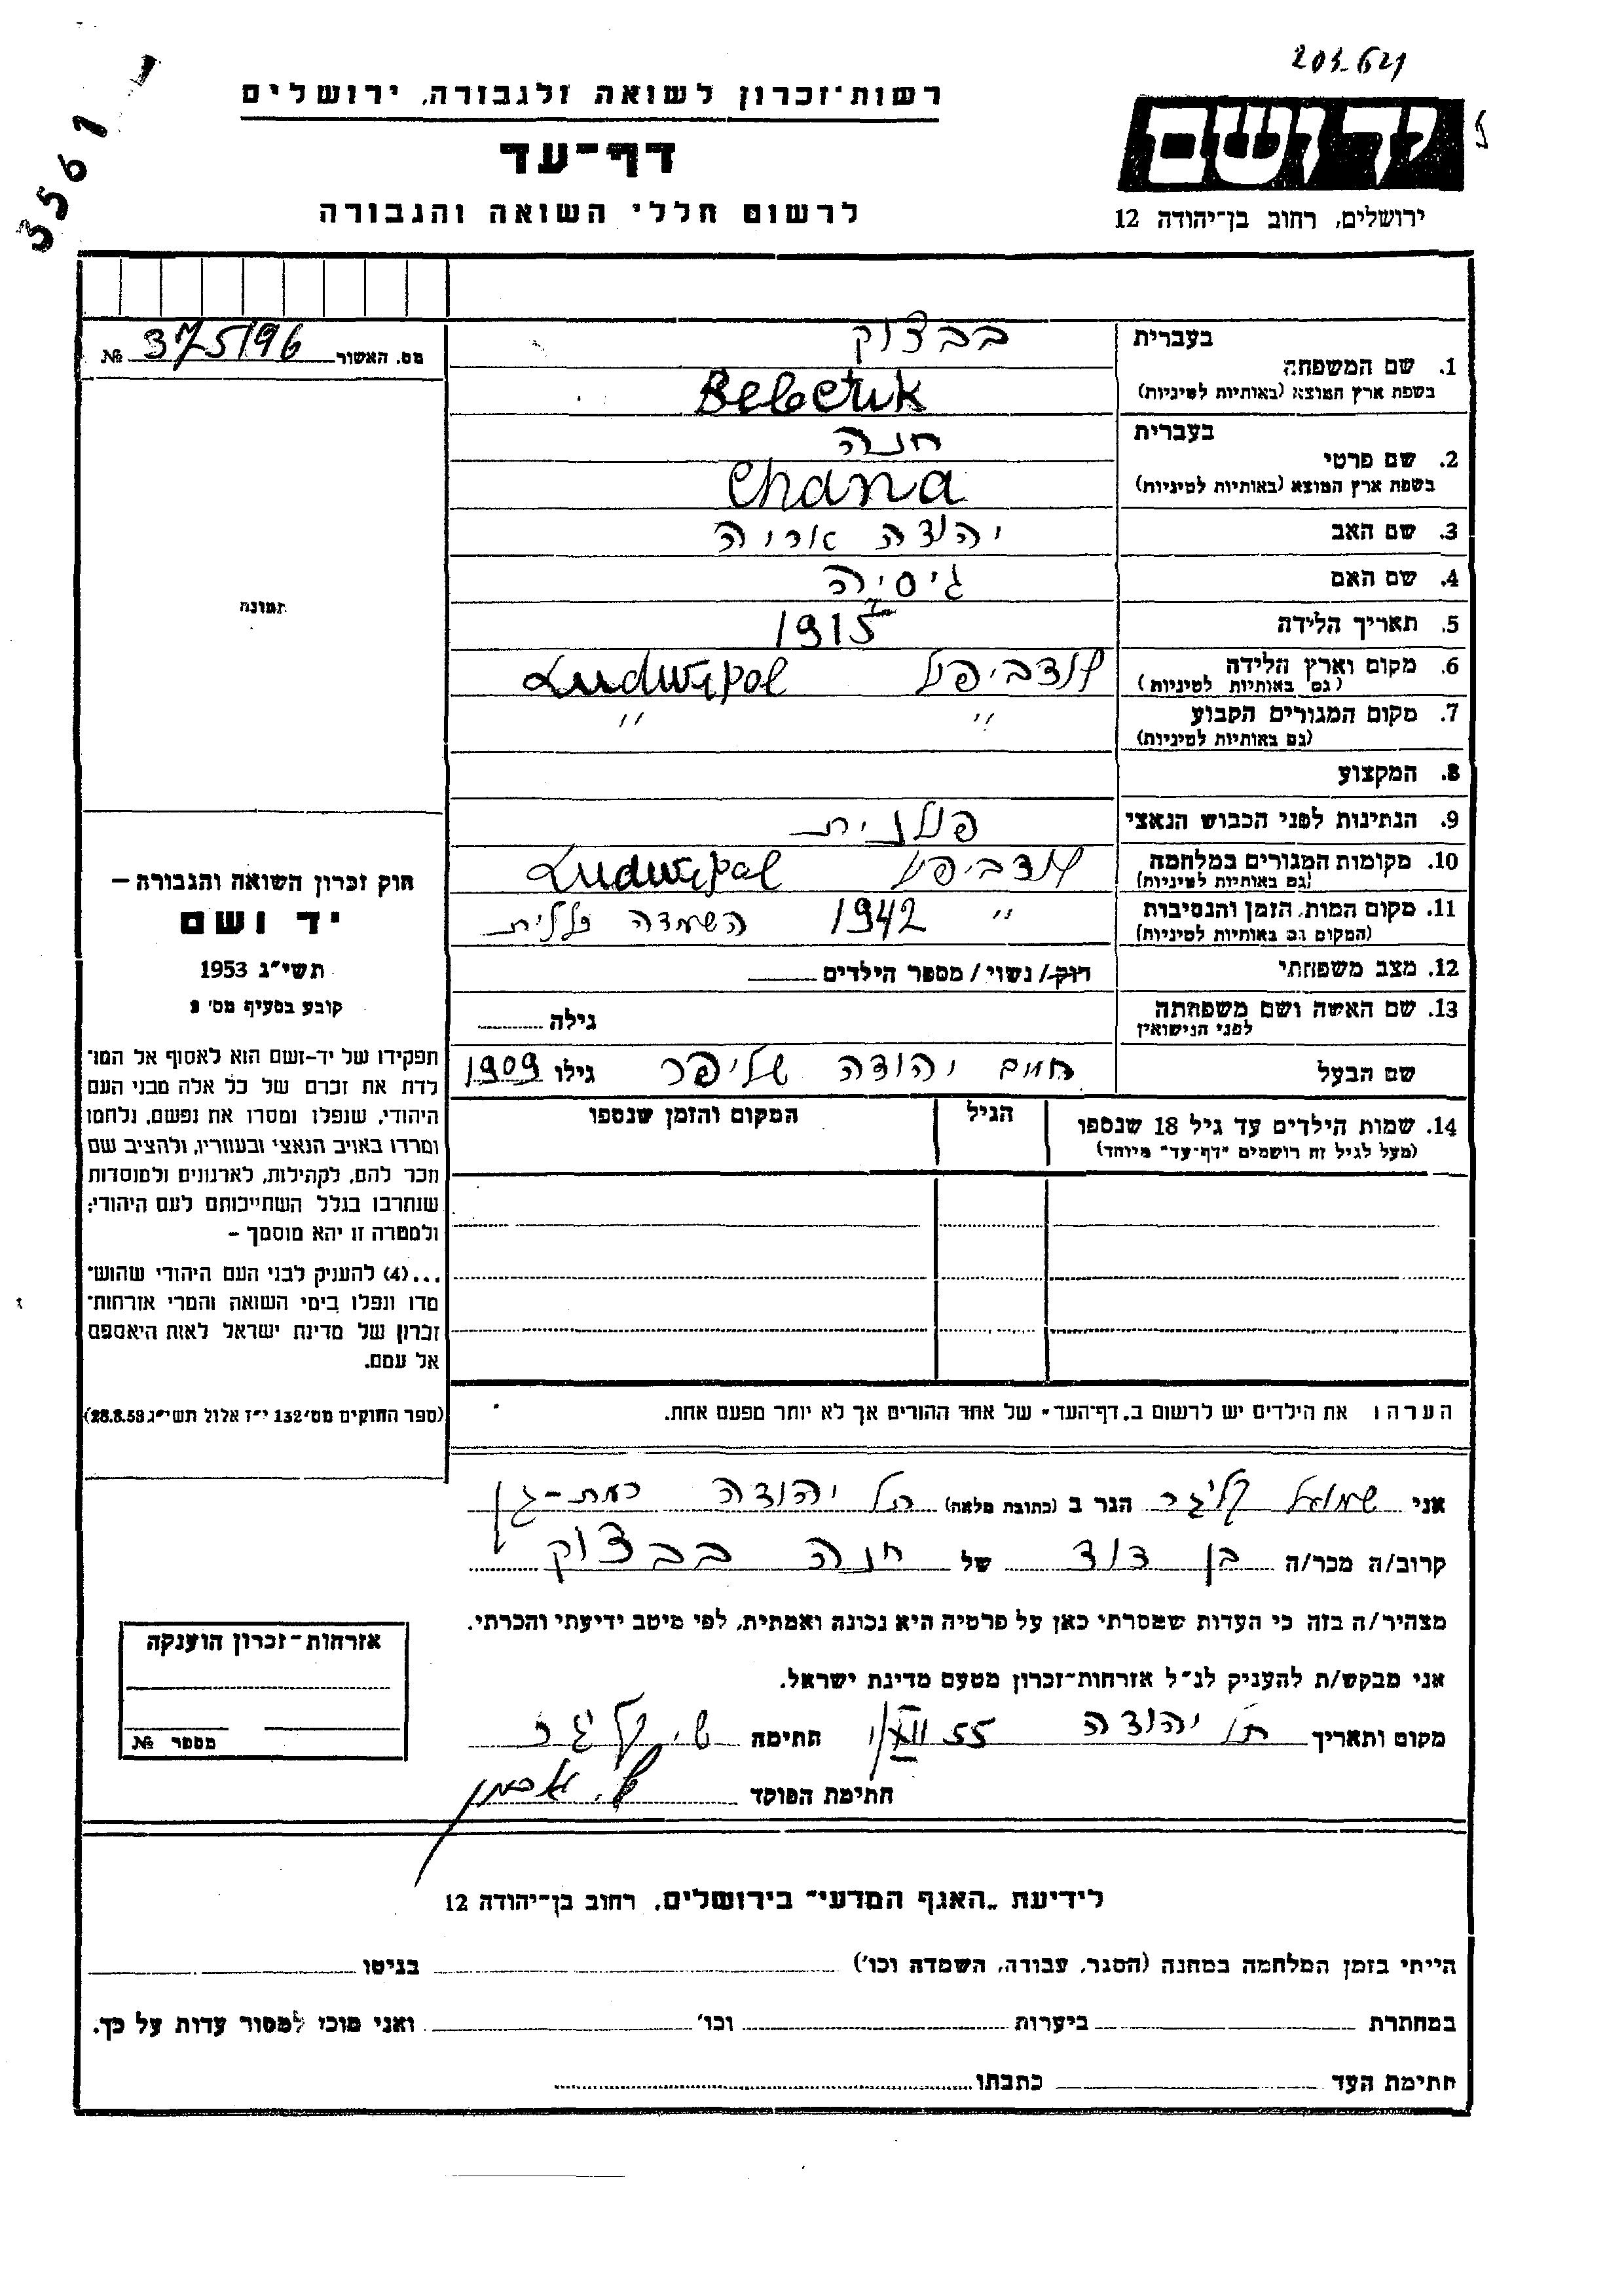 203-621
3561
רשות־זכרון לשואה ולגבורה, ירושלים
דף־עד
לרשום חללי השואה והגבורה
יד ושם
ירושלים, רחוב בן־יהודה 12
מס. האשור 375196 №
תמונה
1. שם המשפחה
בעברית בבצוק
בשפת ארץ המוצא (באותיות לטיניות) Bebczuk
2. שם פרטי
בעברית חנה
בשפת ארץ המוצא (באותיות לטיניות) Chana
3. שם האב יהודה אריה
4. שם האם גיסיה
5. תאריך הלידה 1915
6. מקום וארץ הלידה לודביפול Ludwipol
(גם באותיות לטיניות)
7. מקום המגורים הקבוע " "
(גם באותיות לטיניות)
8. המקצוע
9. הנתינות לפני הכבוש הנאצי פולנית
10. מקומות המגורים במלחמה לודביפול Ludwipol
(גם באותיות לטיניות)
11. מקום המות, הזמן והנסיבות " 1942 השמדה כללית
(המקום גם באותיות לטיניות)
12. מצב משפחתי רוק/ נשוי/ מספר הילדים
13. שם האשה ושם משפחתה
לפני הנישואין גילה
שם הבעל חיים יהודה שליפר גילו 1909
14. שמות הילדים עד גיל 18 שנספו הגיל המקום והזמן שנספו
(מעל לגיל זה רושמים "דף־עד" מיוחד)
הערה: את הילדים יש לרשום ב„דף־העד" של אחד ההורים אך לא יותר מפעם אחת.
חוק זכרון השואה והגבורה –
יד ושם
תשי"ג 1953
קובע בסעיף מס' 2
תפקידו של יד-ושם הוא לאסוף אל המו־
לדת את זכרם של כל אלה מבני העם
היהודי, שנפלו ומסרו את נפשם, נלחמו
ומרדו באויב הנאצי ובעוזריו, ולהציב שם
וזכר להם, לקהילות, לארגונים ולמוסדות
שנחרבו בגלל השתייכותם לעם היהודי;
ולמטרה זו יהא מוסמך –
...(4) להעניק לבני העם היהודי שהוש־
מדו ונפלו בימי השואה והמרי אזרחות־
זכרון של מדינת ישראל לאות היאספם
אל עמם.
(ספר החוקים מס' 132 י"ז אלול תשי"ג 28.8.53)
אני שמואל קליגר הגר ב (כתובת מלאה) תל יהודה רמת-גן
קרוב/ה מכר/ה בן דוד של חנה בבצוק
מצהיר/ה בזה כי העדות שמסרתי כאן על פרטיה היא נכונה ואמתית, לפי מיטב ידיעתי והכרתי.
אני מבקש/ת להעניק לנ"ל אזרחות־זכרון מטעם מדינת ישראל.
מקום ותאריך תל יהודה 1/XII 55 חתימה ש. קליגר
חתימת הפוקד
אזרחות־זכרון הוענקה
מספר №
לידיעת „האגף המדעי" בירושלים, רחוב בן־יהודה 12
הייתי בזמן המלחמה במחנה (הסגר, עבודה, השמדה וכו') בגיטו
במחתרת ביערות וכו' ואני מוכן למסור עדות על כך.
חתימת העד כתבתו